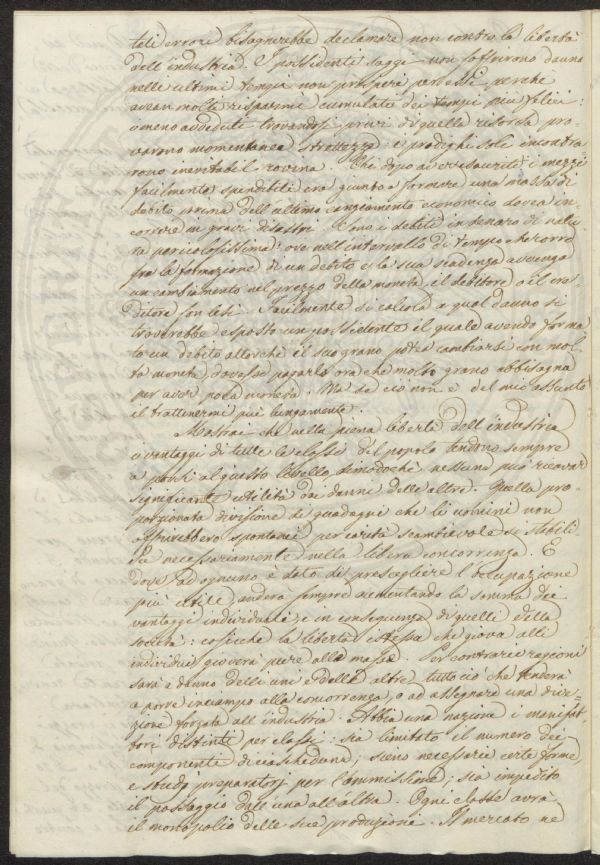 tali errori bisognerebbe declamare non contro la libertà
dell'industria. I possidenti saggi non soffrirono danno
nelle ultimi tempi non prosperi per essi, perchè
avean molti risparmi cumulati dei tempi più felici:
i meno avveduti trovandosi privi di quella risorsa pro-
varono momentanea strettezza: i prodighi soli incontra-
rono inevitabil rovina. Chi dopo aver esauriti i mezzi
facilmente spendibili era giunto a formare una massa di
debito prima dell'ultimo cangiamento economico dovea in-
correre in gravi disastri. Sono i debiti in denaro di natu-
ra pericolosissima: ove nell'intervallo di tempo che corre
fra la formazione di un debito e la sua scadenza avvenga
un cambiamento nel prezzo della moneta, il debitore o il cre-
ditore son lesi. Facilmente si calcola a qual danno si
troverebbe esposto un possidente il quale avendo forma-
to un debito allorchè il suo grano potea cambiarsi con mol-
ta moneta, dovesse pagarlo ora che molto grano abbisogna
per aver poca moneta. Ma da ciò non è del mio assunto
il trattenermi più lungamente.
Mostrai che nella piena libertà dell'industria
i vantaggi di tutte le classi del popolo tendono sempre
a porsi al giusto livello dimodochè nessuna può ricavar
significante utilità dai danni delle altre. Quella pro-
porzionata divisione di guadagni che li uomini non
offrirebbero spontanei per carità scambievole si stabili-
sce necessariamente nella libera concorrenza. E
dove ad ognuno è dato di prescegliere l'occupazione
più utile, anderà sempre aumentando la somma dei
vantaggi individuali, e in conseguenza di quelli della
società: cosicchè la libertà istessa che giova alli
individui gioverà pure alla massa. Per contrarie ragioni
sarà a danno delli uni e delle altre tutto ciò che tenderà
a porre inciampo alla concorrenza, o ad assegnare una dire-
zione forzata all'industria. Abbia una nazione i manifat-
tori distinti per classi: sia limitato il numero dei
componenti di ciascheduna; sieno necessarie certe forme,
e studj preparatorj per l'ammissione; sia impedito
il passaggio dall'una all'altra. Ogni classe avrà
il monopolio delle sue produzioni. Il mercato ne